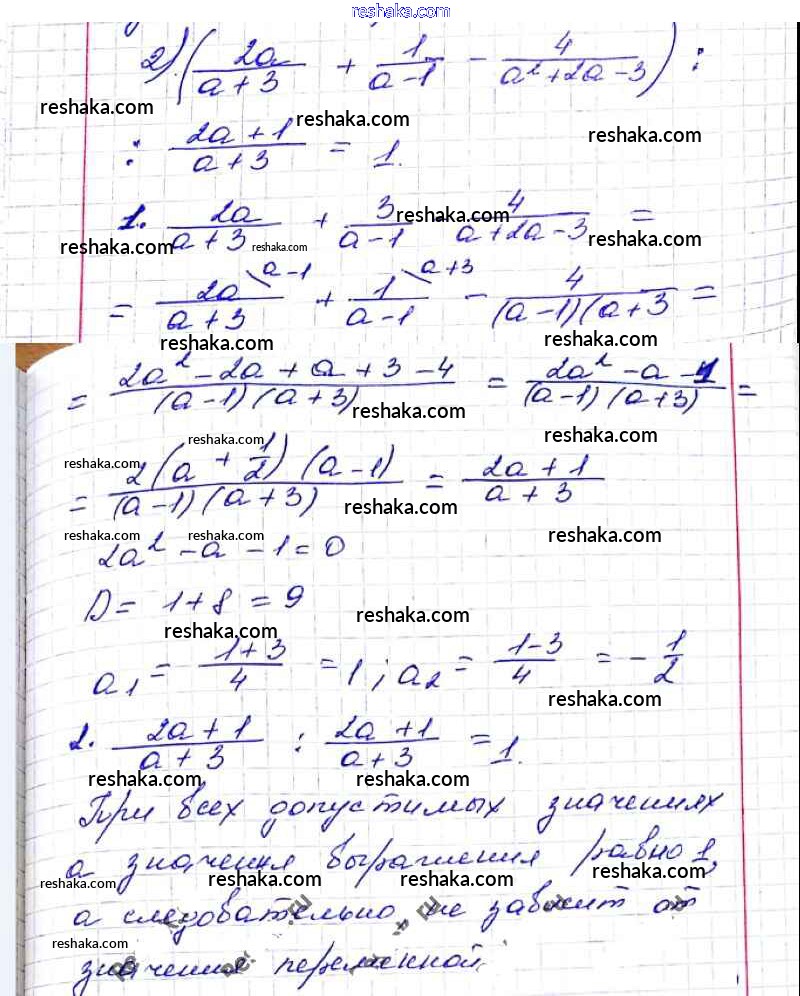 www.reshaka.com
2) (2a/(a+3) + 1/(a-1) - 4/(a²+2a-3)) :
reshaka.com reshaka.com reshaka.com
: (2a+1)/(a+3) = 1.
1. 2a/(a+3) + 3/(a-1) - 4/(a+2a-3) =
reshaka.com reshaka.com reshaka.com reshaka.com
= 2a\a-1/(a+3) + 1\a+3/(a-1) - 4/((a-1)(a+3) =
reshaka.com reshaka.com
= (2a²-2a+a+3-4)/((a-1)(a+3)) = (2a²-a-1)/((a-1)(a+3)) =
reshaka.com reshaka.com
reshaka.com reshaka.com
= 2(a+1/2)(a-1)/((a-1)(a+3)) = (2a+1)/(a+3)
reshaka.com reshaka.com reshaka.com reshaka.com
2a²-a-1=0
D= 1+8 = 9
reshaka.com reshaka.com
a₁ = (1+3)/4 = 1; a₂ = (1-3)/4 = -1/2
reshaka.com
2. (2a+1)/(a+3) : (2a+1)/(a+3) = 1.
reshaka.com reshaka.com
При всех допустимых значениях
а значения выражения равно 1,
reshaka.com reshaka.com reshaka.com reshaka.com
а следовательно, не зависит от
reshaka.com
значения переменной.